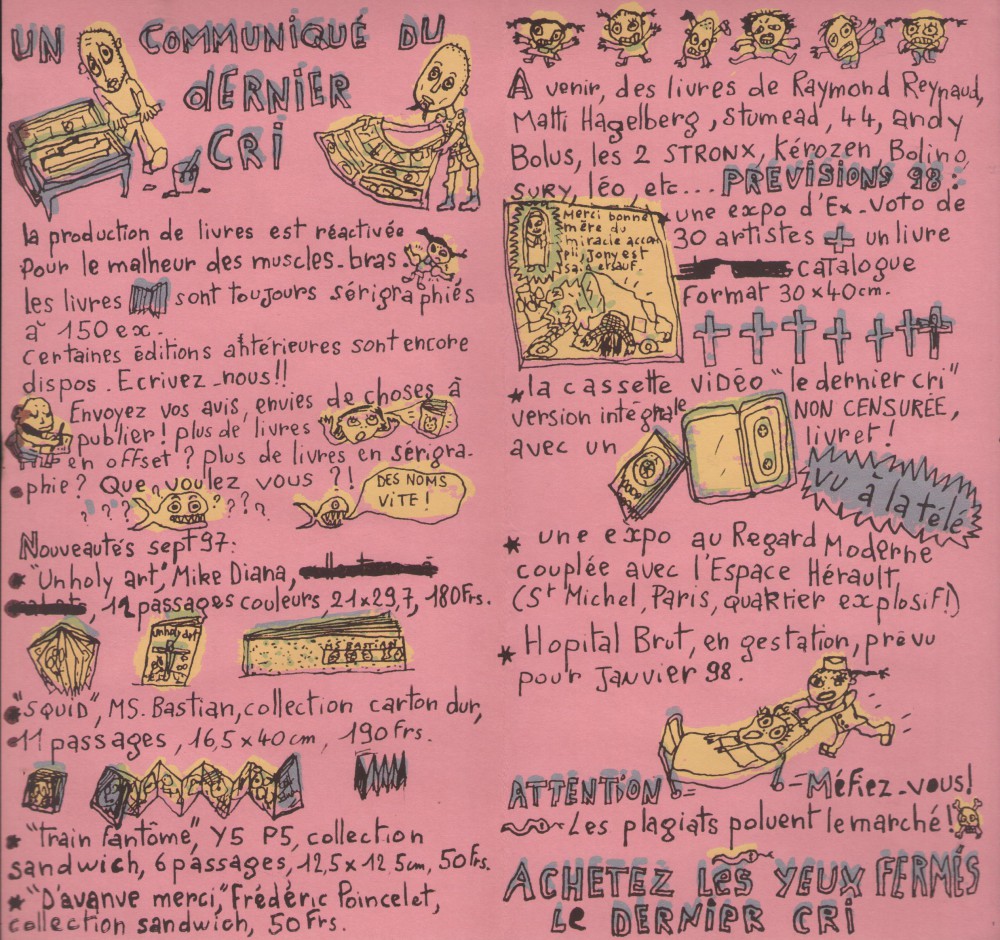 UN COMMUNIQUÉ DU
dERNIER
CRi
la production de livres est réactivée
Pour le malheur des muscles-bras
les livres sont toujours sérigraphiés
à 150 ex.
certaines éditions antérieures sont encore
dispos. Ecrivez-nous!!
Envoyez vos avis, envies de choses à
publier! plus de livres
en offset? plus de livres en sérigra-
phie? Que voulez vous?!
DES NOMS
ViTE!
? ? ? ? ? ?
Nouveautés sept 97:
* "Unholy art", Mike Diana,
, 11 passages couleurs, 21x29,7, 180Frs.
unholy art
MS BASTIAN
* "SQUID", MS. Bastian, collection carton dur,
11 passages, 16,5 x 40 cm, 190 Frs.
* "Train fantôme", Y5 P5, collection
sandwich, 6 passages, 12,5 x 12,5cm, 50 Frs.
* "D'avanve merci", Frédéric Poincelet,
collection sandwich, 50 Frs.
A venir, des livres de Raymond Reynaud,
Matti Hagelberg, Stumead, 44, andy
Bolus, les 2 STRONX, Kérozen, Bolino,
SURY, léo, etc... PREVISIONS 98:
Merci bonne
mère du
miracle accom
pli, Jony est
sain et sauf.
* une expo d'Ex-Voto de
30 artistes + un livre
catalogue
format 30x40cm.
* la cassette ViDÉO "le dernier cri"
version intégrale NON CENSURÉE,
avec un livret!
VU à la télé
* une expo au Regard Moderne
couplée avec l'Espace Hérault
(St Michel, Paris, quartier explosif!)
* Hopital Brut, en gestation, prévu
pour Janvier 98.
ATTENTiON - Méfiez-vous!
Les plagiats poluent le marché!
ACHETEZ LES YEUX FERMÉS
LE DERNiER CRi